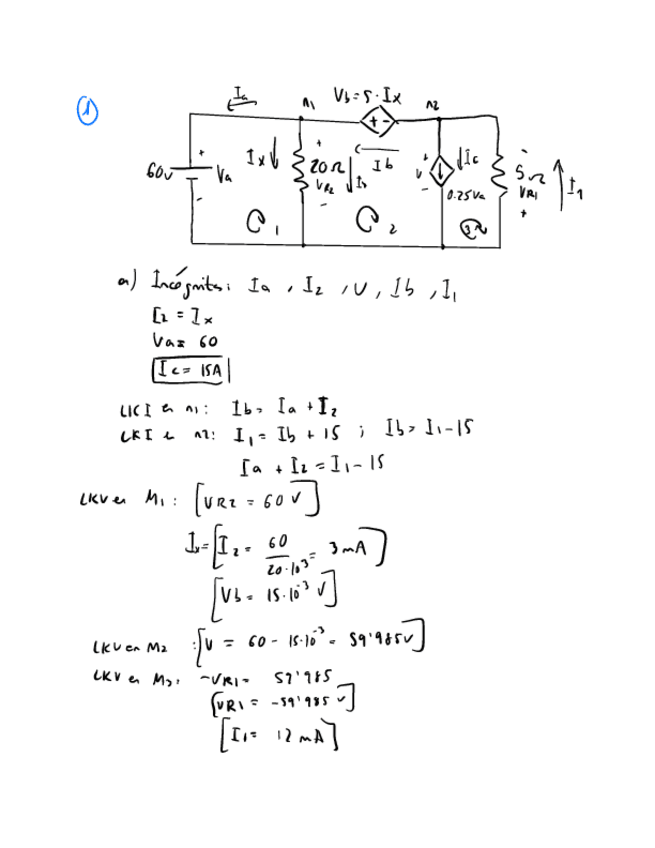 1
Ia
n1
Vb = 5 · Ix
n2
+
+ -
-
60v
Va
Ix
20Ω
VR2
I2
Ib
V
Ic
0.25Va
5Ω
VR1
I1
1
2
3
a) Incógnitas: Ia , I2 , V , Ib , I1
I2 = Ix
Va = 60
Ic = 15A
LKI en n1: Ib = Ia + I2
LKI en n2: I1 = Ib + 15 ; Ib = I1 - 15
Ia + I2 = I1 - 15
LKV en M1: [VR2 = 60 V]
Ix = [I2 = 60 / 20·10³ = 3 mA]
[Vb = 15·10⁻³ V]
LKV en M2 : [V = 60 - 15·10⁻³ = 59'985V]
LKV en M3: -VR1 = 59'985
[VR1 = -59'985 V]
[I1 = 12 mA]